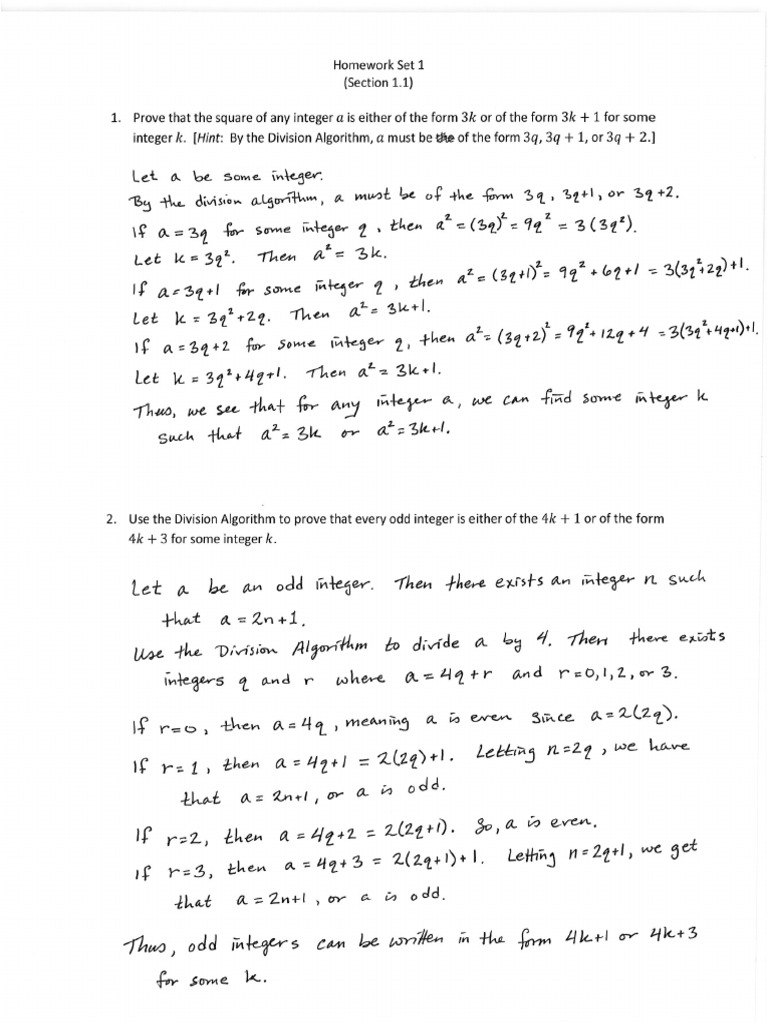 Homework Set 1
(Section 1.1)
1. Prove that the square of any integer a is either of the form 3k or of the form 3k + 1 for some
integer k. [Hint: By the Division Algorithm, a must be of the form 3q, 3q + 1, or 3q + 2.]
Let a be some integer.
By the division algorithm, a must be of the form 3q, 3q+1, or 3q+2.
If a = 3q for some integer q, then a² = (3q)² = 9q² = 3(3q²).
Let k = 3q². Then a² = 3k.
If a = 3q+1 for some integer q, then a² = (3q+1)² = 9q² + 6q + 1 = 3(3q²+2q)+1.
Let k = 3q²+2q. Then a² = 3k+1.
If a = 3q+2 for some integer q, then a² = (3q+2)² = 9q²+12q+4 = 3(3q²+4q+1)+1.
Let k = 3q²+4q+1. Then a² = 3k+1.
Thus, we see that for any integer a, we can find some integer k
such that a² = 3k or a² = 3k+1.
2. Use the Division Algorithm to prove that every odd integer is either of the 4k + 1 or of the form
4k + 3 for some integer k.
Let a be an odd integer. Then there exists an integer n such
that a = 2n+1.
Use the Division Algorithm to divide a by 4. Then there exists
integers q and r where a = 4q+r and r = 0, 1, 2, or 3.
If r=0, then a = 4q, meaning a is even since a = 2(2q).
If r = 1, then a = 4q+1 = 2(2q)+1. Letting n = 2q, we have
that a = 2n+1, or a is odd.
If r=2, then a = 4q+2 = 2(2q+1). So, a is even.
If r=3, then a = 4q+3 = 2(2q+1)+1. Letting n = 2q+1, we get
that a = 2n+1, or a is odd.
Thus, odd integers can be written in the form 4k+1 or 4k+3
for some k.